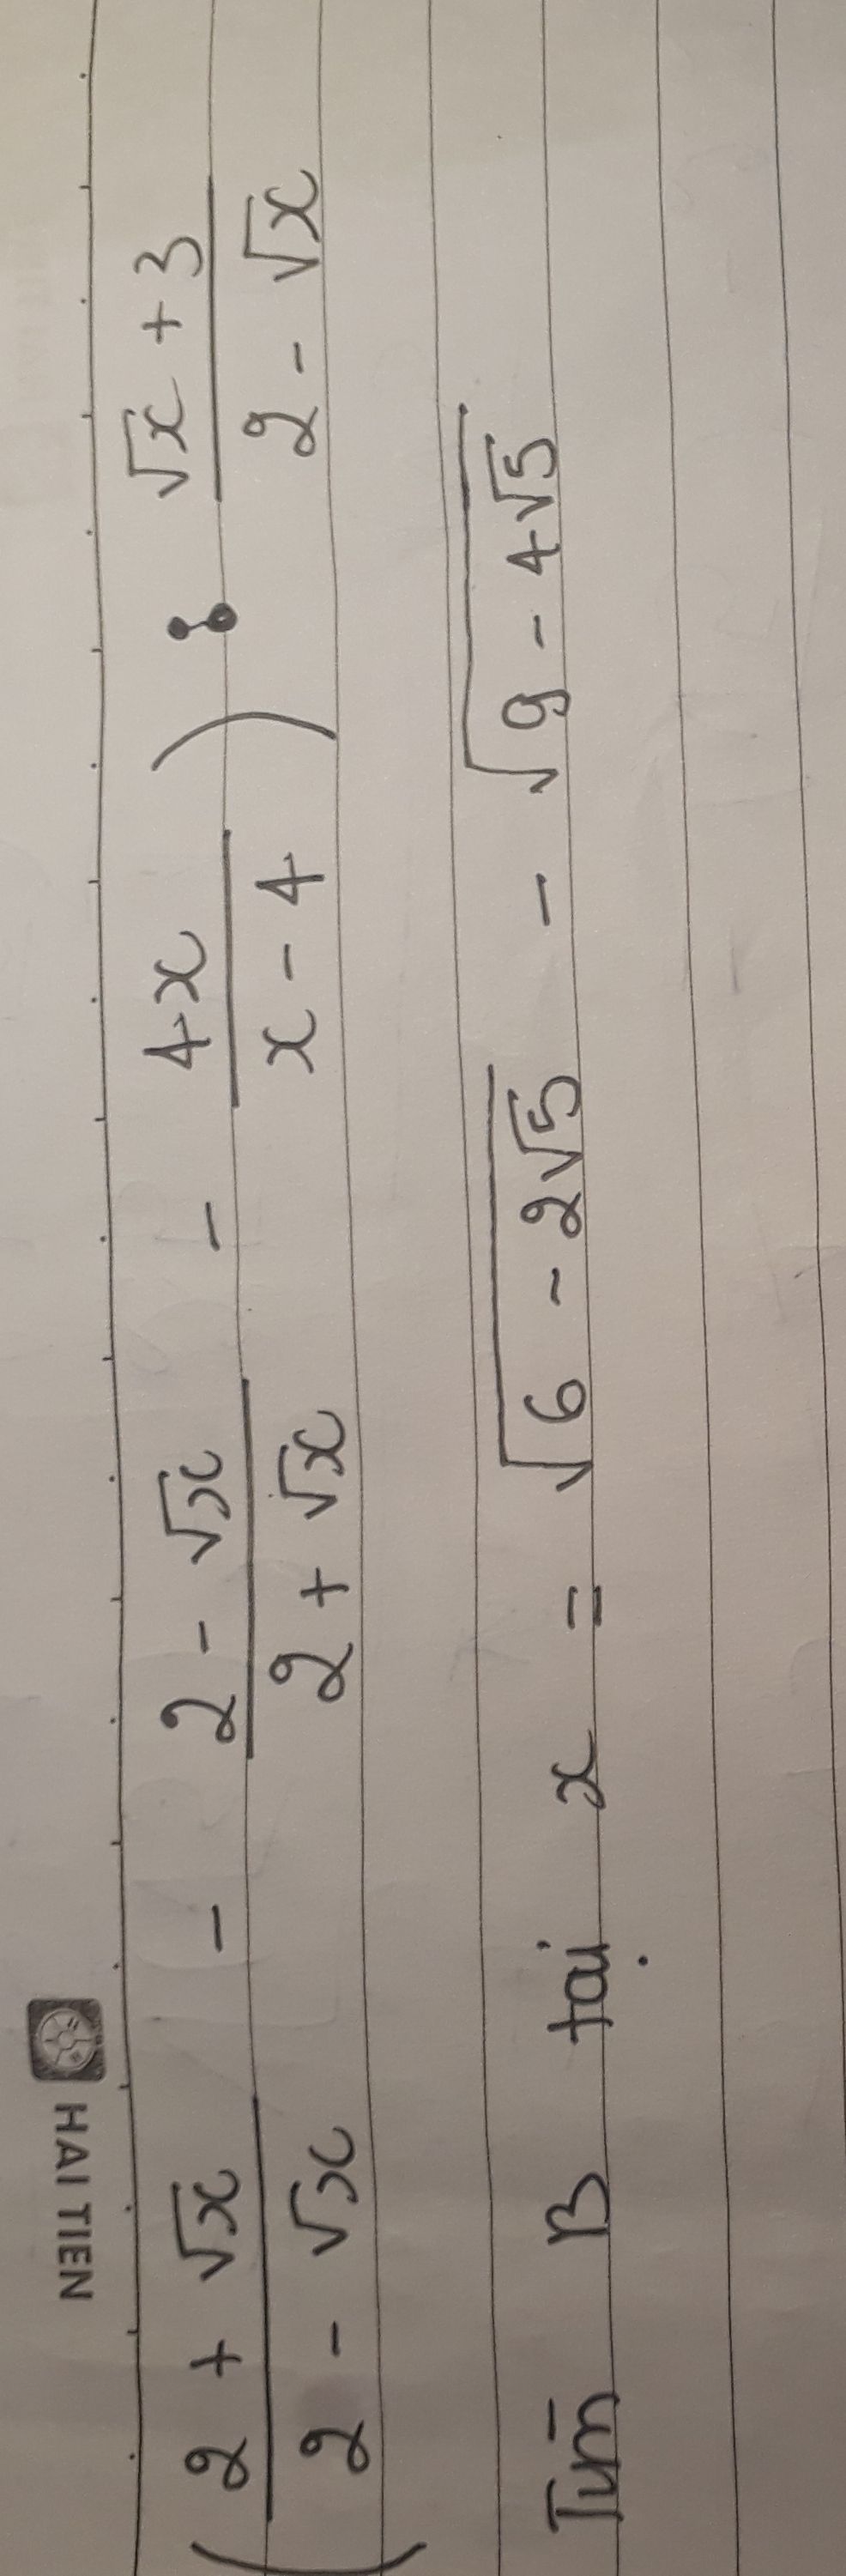 HAI TIEN
(2 + √x / 2 - √x - 2 - √x / 2 + √x - 4x / x - 4) : √x + 3 / 2 - √x
Tìm B tại x = √(6 - 2√5) - √(9 - 4√5)